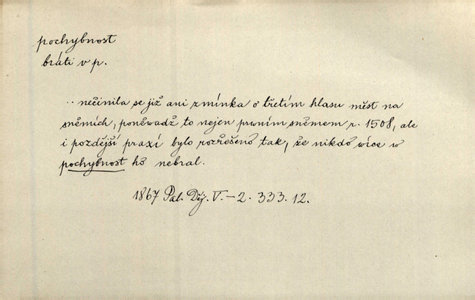 pochybnost
bráti v p.
.. nečinila se již ani zmínka o třetím hlasu měst na
sněmích, poněwadž to nejen prwním sněmem r. 1508, ale
i pozdější praxí bylo rozřešeno tak, že nikdo wíce w
pochybnost ho nebral.
1867 Pal. Děj. V.–2. 333. 12.